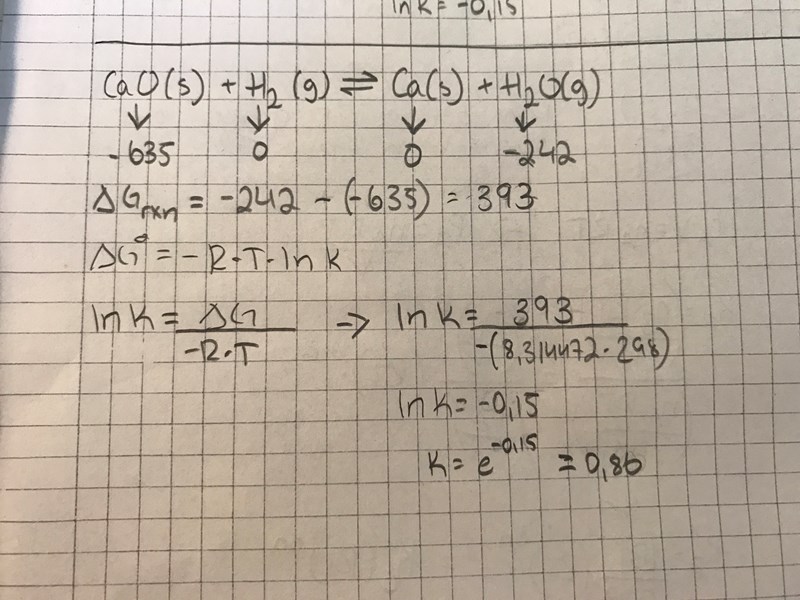 ln K = -0,15
CaO(s) + H₂(g) ⇌ Ca(s) + H₂O(g)
↓ ↓ ↓ ↓
-635 0 0 -242
ΔG_rxn = -242 - (-635) = 393
ΔG° = - R·T·ln K
ln K = ΔG / -R·T → ln K = 393 / -(8,314472·298)
ln K = -0,15
K = e^-0,15 = 0,86